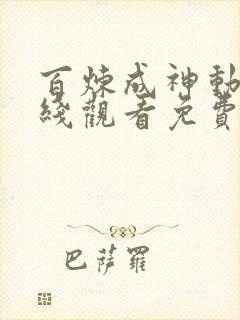 百炼成神動
綫觀看免費
巴薩羅